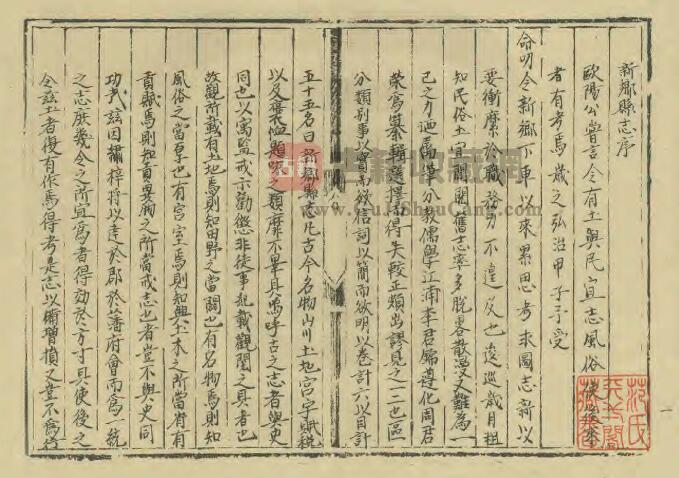 新鄉縣志序
歐陽公嘗言令有土與民宜志風俗使後來
者有考焉歲之弘治甲子予受
命明令新鄉下車以來累思考求圖志新以
要衝縻於職務力不遑及也逡巡歲月粗
知民俗土宜間閱舊志率多脫畧散漫又難為一
己之力迺屬筆分教儒學江浦李君錦遵化周君
榮寫纂輯選擇而得失較正類出謬見之一二也區
分類別事以實而欲信詞以簡而欲明以卷計六以目計
五十五名曰新鄉縣志凡古今名物山川土地宮室賦稅
以及褒恤題咏之類靡不畢具嗚呼古之志者與史
同也以寓監戒示勸懲非徒事紀載觀聞之具者也
故觀所載有土地焉則知田野之當闢也有名物焉則知
風俗之當厚也有宮室焉則知興土木之所當省有
貢賦焉則知貢異物之所當戒志也者豈不與史同
功哉茲因繡梓將以達於郡於藩府會而為一統
之志庶幾令之所宜為者得効於方寸具使後之
令茲土者復有作焉得考是志以衡增損又豈不為待
一
古籍收藏网
www.GuJiShouCang.com